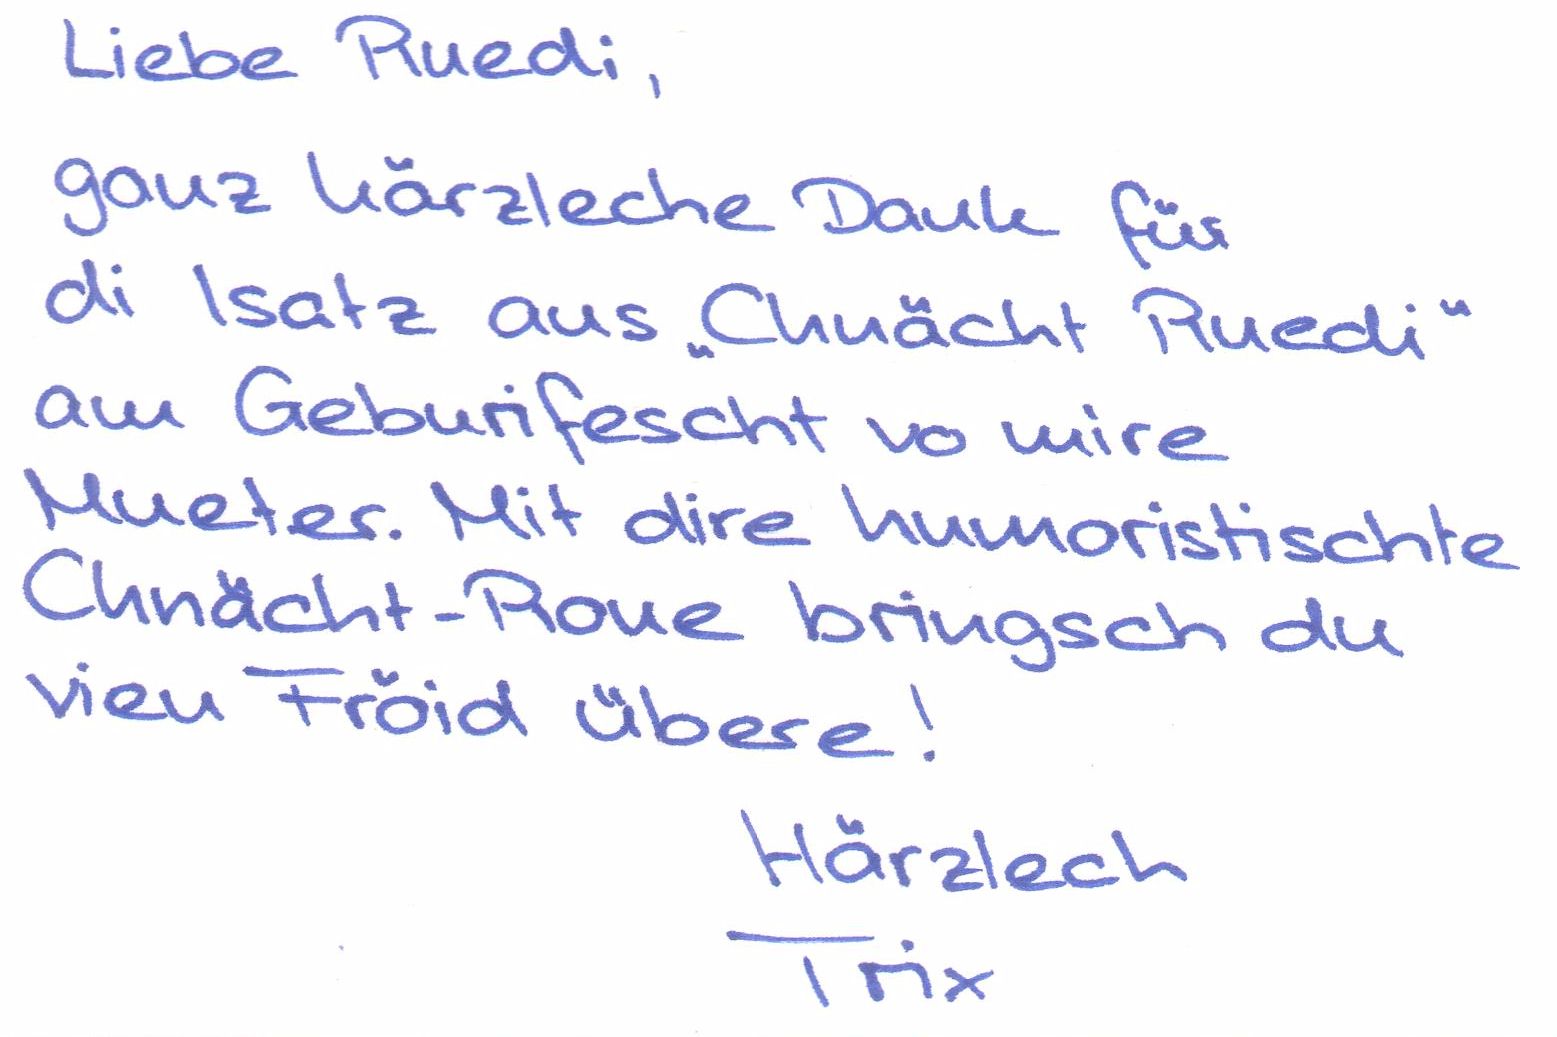 Liebe Ruedi,
ganz härzleche Dank für
di Isatz aus „Chnächt Ruedi“
am Geburifescht vo mire
Mueter. Mit dire humoristischte
Chnächt-Roue bringsch du
vieu Fröid übere!
Härzlech
Trix